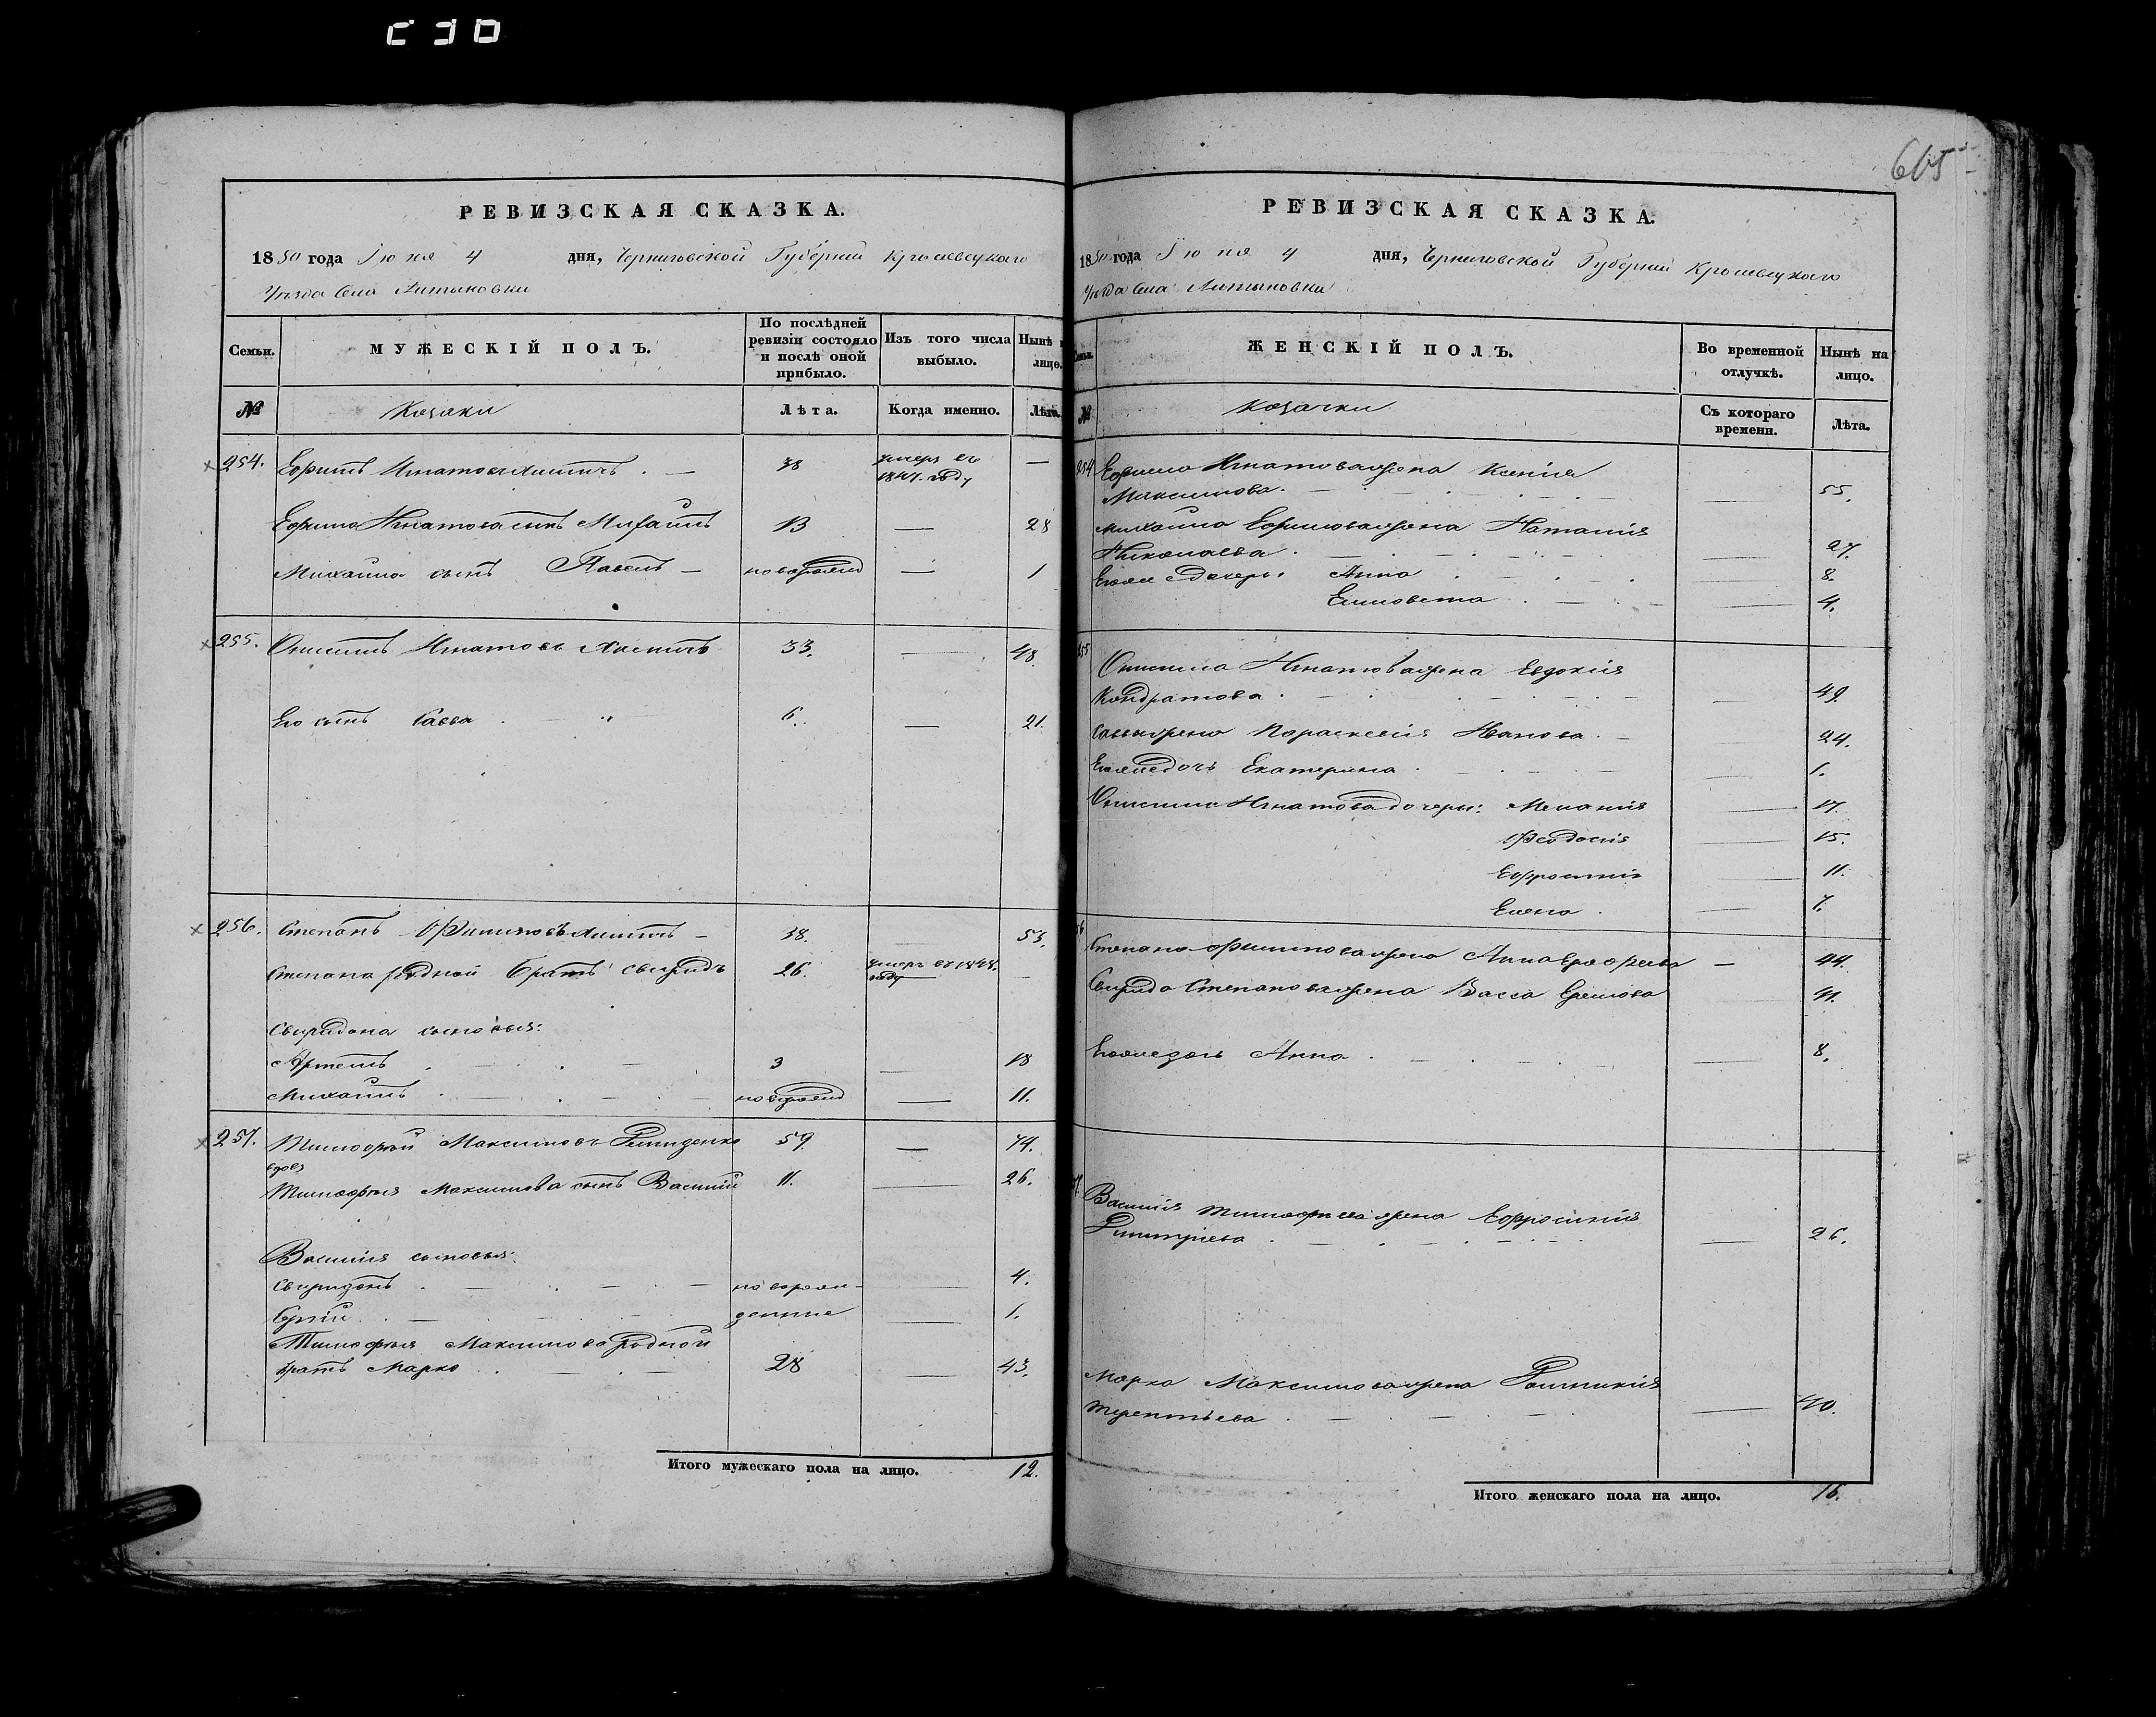 РЕВИЗСКАЯ СКАЗКА.
1850 года Іюня 4 дня, Черниговской Губерніи Кролевецкаго
Уѣзда Села Литвиновки
Семьи.
МУЖЕСКІЙ ПОЛЪ.
По послѣдней ревизіи состояло и послѣ оной прибыло.
Изъ того числа выбыло.
Нынѣ лицо.
№
Козаки
Лѣта.
Когда именно.
Лѣта.
254. Ефимъ Игнатовъ 38 умеръ въ
году —
Ефима Игнатова сынъ Михаилъ 13 — 28
Михаила сынъ Павелъ — новорожд — 1
255. Онисимъ Игнатовъ 33. — 48.
Его сынъ Савва 6. — 21.
256. Степанъ Филиповъ — 38. 53.
Степана родной братъ Свиридъ 26. умеръ въ
году —
Свиридона сыновья:
Артемъ 3 — 18
Михаилъ новорожд — 11.
257. Тимофей Максимовъ 59. — 74.
вдовъ
Тимофея Максимова сынъ Василій 11. — 26.
Василія сыновья:
Свиридонъ новорож- 4.
Сергій денные — 1.
Тимофея Максимова родной
братъ Марко 28 — 43.
Итого мужескаго пола на лицо. 12.
615
РЕВИЗСКАЯ СКАЗКА.
1850 года Іюня 4 дня, Черниговской Губерніи Кролевецкаго
Уѣзда Села Литвиновки
Семьи.
ЖЕНСКІЙ ПОЛЪ.
Во временной отлучкѣ.
Нынѣ на лицо.
№
Козачки
Съ котораго времени.
Лѣта.
254 Ефима Игнатова жена Ксенія
Максимова. — 55.
Михаила Ефимова жена Наталія
Николаева. — 27.
Его же дочери: Анна — 8.
Елисовета — 4.
255
Онисима Игнатова жена Евдокія
Кондратова. — 49.
Саввы жена Параскевія Иванова. 24.
Его же дочь Екатерина — 1.
Онисима Игнатова дочери: Меланія — 17.
Феодосія — 15.
Ефросинія — 11.
Елена — 7.
Степана Филипова жена Анна — 44.
Свирида Степанова жена Васса Ефимова — 41.
Его же дочь Анна — 8.
Василія Тимофеева жена Ефросинія
Димитріева — 26.
Марка Максимова жена
Терентьева — 40.
Итого женскаго пола на лицо. 16.